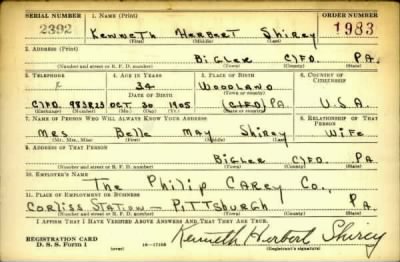 SERIAL NUMBER 1. NAME (Print) ORDER NUMBER
2392 Kenneth Herbert Shirey 1983
(First) (Middle) (Last)
2. ADDRESS (Print)
Bigler CLFD. PA.
(Number and street or R. F. D. number) (Town) (County) (State)
3. TELEPHONE 4. AGE IN YEARS 5. PLACE OF BIRTH 6. COUNTRY OF CITIZENSHIP
34 Woodland
DATE OF BIRTH (Town or county)
CLFD. OCT. 30 1905 (CLFD) PA. U.S.A.
(Exchange) (Number) (Mo.) (Day) (Yr.) (State or country)
7. NAME OF PERSON WHO WILL ALWAYS KNOW YOUR ADDRESS 8. RELATIONSHIP OF THAT PERSON
Mrs Belle May Shirey Wife
(Mr., Mrs., Miss) (First) (Middle) (Last)
9. ADDRESS OF THAT PERSON
Bigler CLFD. PA.
(Number and street or R. F. D. number) (Town) (County) (State)
10. EMPLOYER'S NAME
The Philip Carey Co.,
11. PLACE OF EMPLOYMENT OR BUSINESS
Corliss Station – Pittsburgh PA.
(Number and street or R. F. D. number) (Town) (County) (State)
I AFFIRM THAT I HAVE VERIFIED ABOVE ANSWERS AND THAT THEY ARE TRUE.
REGISTRATION CARD Kenneth Herbert Shirey
D. S. S. Form 1 (over) (Registrant's signature)